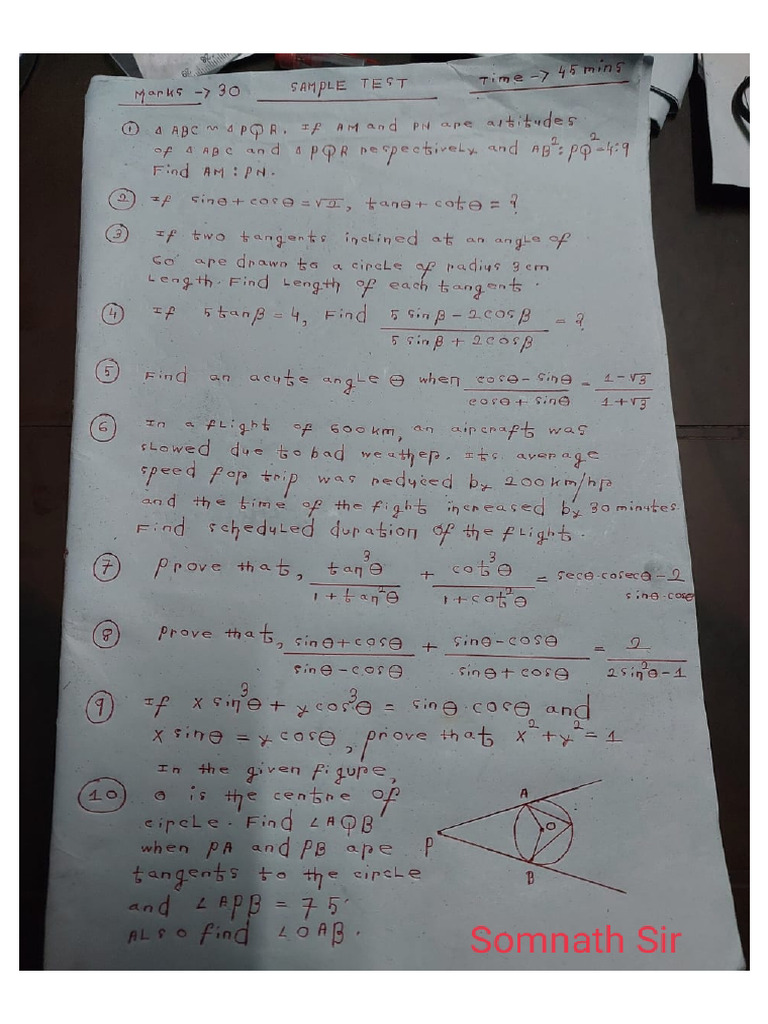 Marks → 30 SAMPLE TEST Time → 45 mins
① Δ ABC ~ Δ PQR. If AM and PN are altitudes
of Δ ABC and Δ PQR respectively and AB²: PQ² = 4:9
Find AM : PN.
② If sinθ + cosθ = √2, tanθ + cotθ = ?
③ If two tangents inclined at an angle of
60° are drawn to a circle of radius 3 cm
Length. Find Length of each tangents.
④ If 5 tanβ = 4, Find (5 sinβ − 2 cosβ)/(5 sinβ + 2 cosβ) = ?
⑤ Find an acute angle θ when (cosθ − sinθ)/(cosθ + sinθ) = (1 − √3)/(1 + √3)
⑥ In a flight of 600 km, an aircraft was
slowed due to bad weather. Its average
speed for trip was reduced by 200 km/hr
and the time of the fight increased by 30 minutes
Find scheduled duration of the flight.
⑦ Prove that, tan³θ/(1 + tan²θ) + cot³θ/(1 + cot²θ) = secθ·cosecθ − 2 sinθ·cosθ
⑧ Prove that, (sinθ + cosθ)/(sinθ − cosθ) + (sinθ − cosθ)/(sinθ + cosθ) = 2/(2 sin²θ − 1)
⑨ If x sin³θ + y cos³θ = sinθ·cosθ and
x sinθ = y cosθ, prove that x² + y² = 1
⑩ In the given figure,
O is the centre of
circle. Find ∠AQB
when PA and PB are
tangents to the circle
and ∠APB = 75°
ALSO find ∠OAB.
A
O
P
B
Somnath Sir